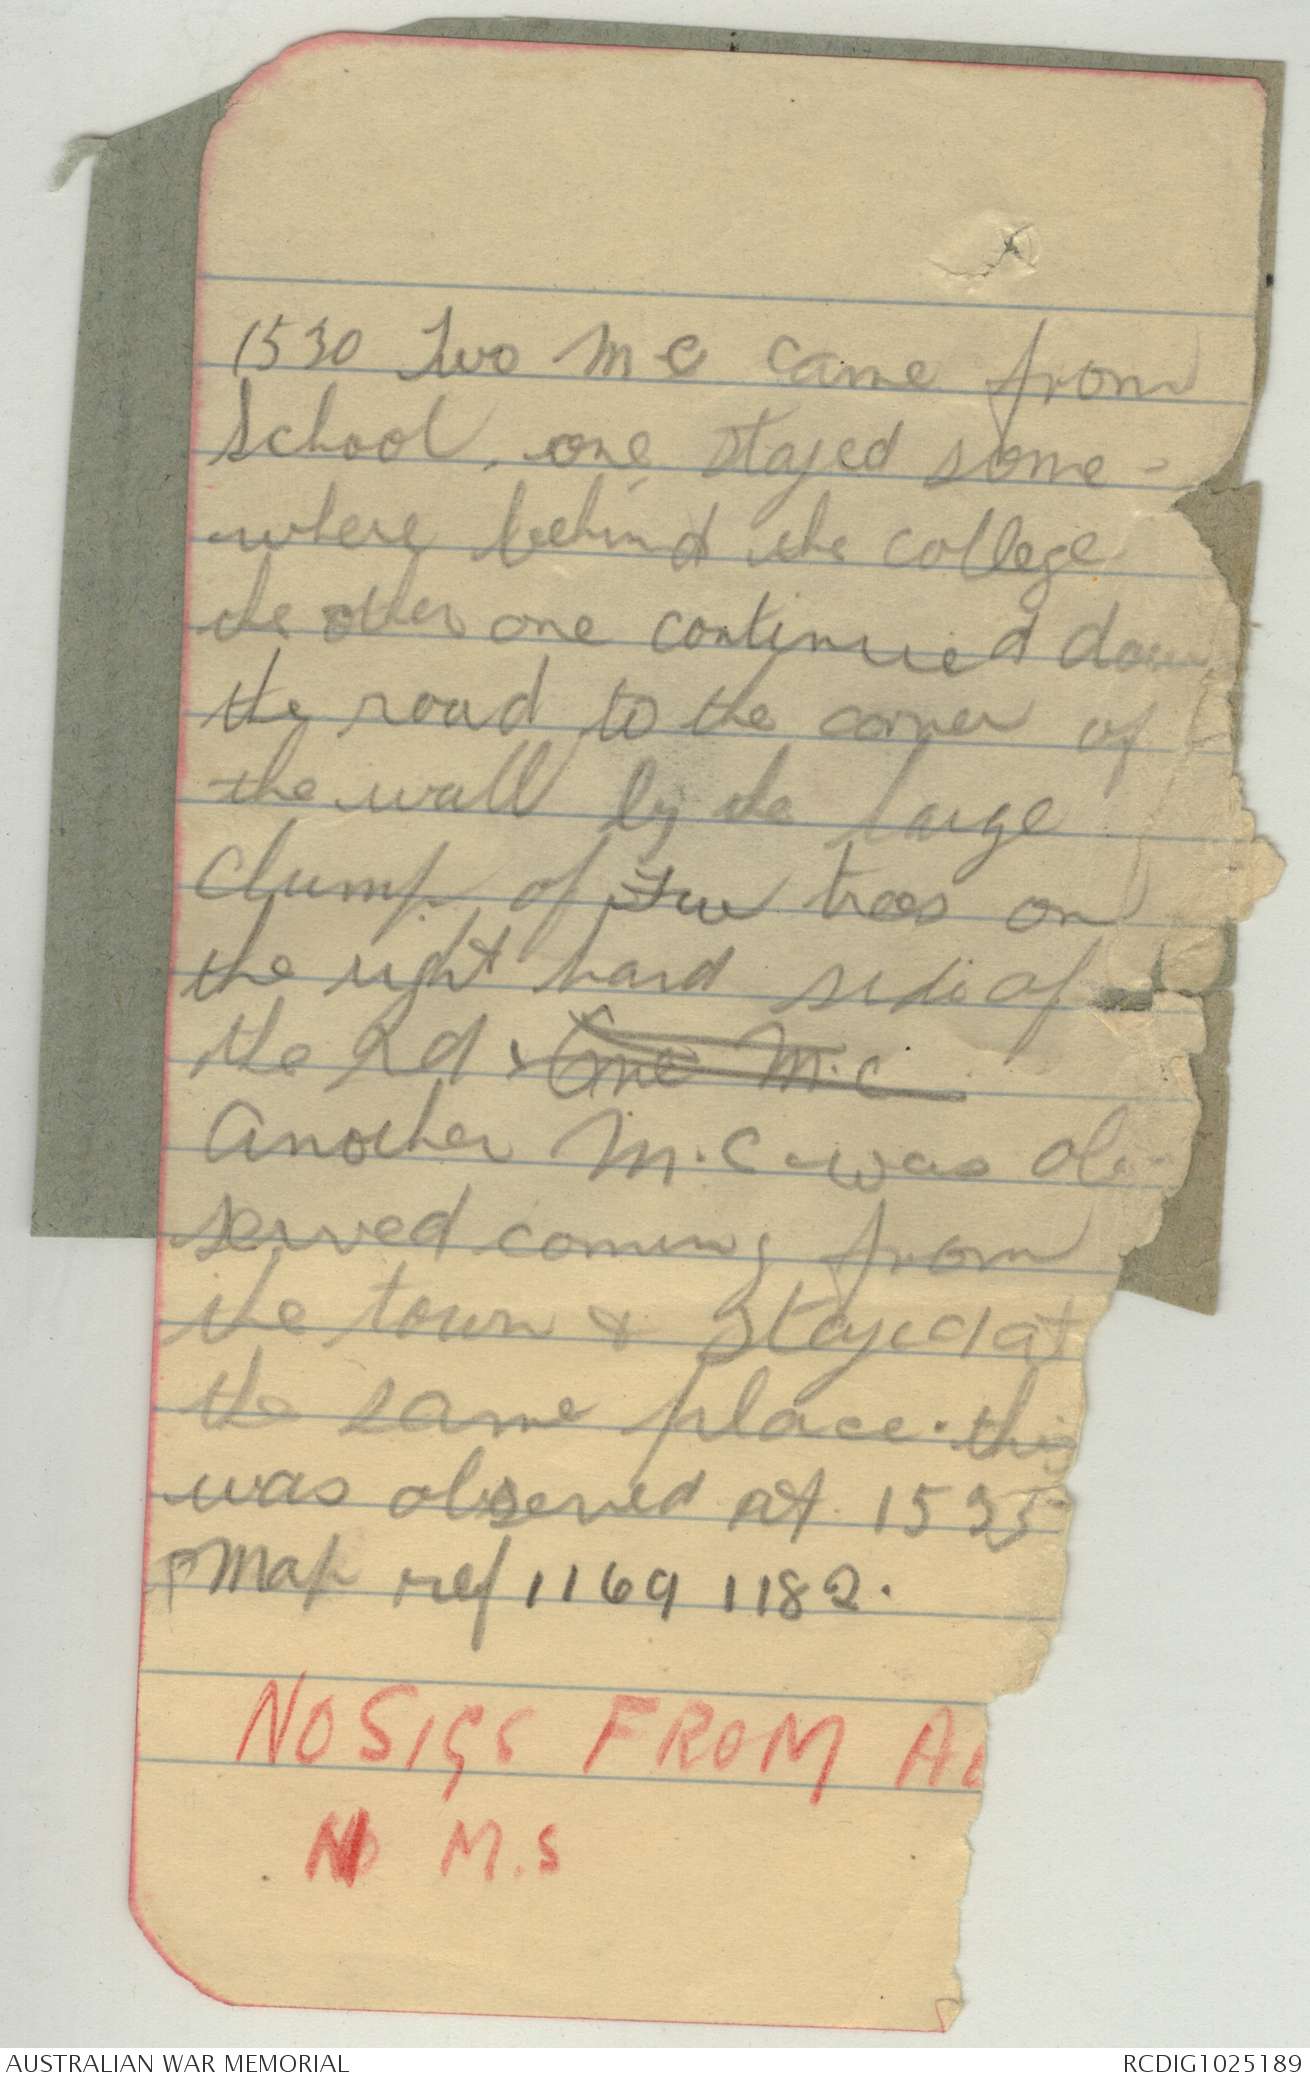 1530 Two M C came from
School, one stayed some-
where behind the college
the other one continued down
the road to the corner of
the wall by the large
clump of trees on
the right hand side of
the Rd & One M.C
Another M.C was ob-
served coming from
the town & stayed at
the same place. this
was observed at 1535
Map ref 1169 1182.
NO SIGS FROM
NO M.S
AUSTRALIAN WAR MEMORIAL
RCDIG1025189